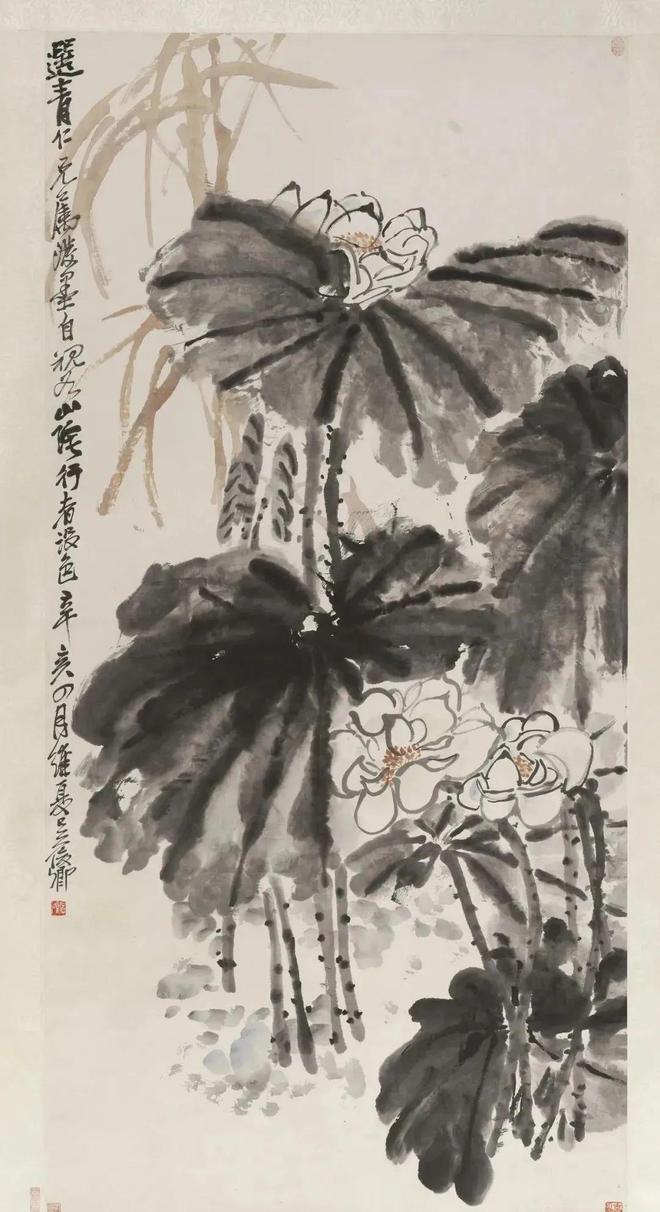 選青仁兄屬潑墨自視如山陰行者設色辛亥四月維夏吳俊卿